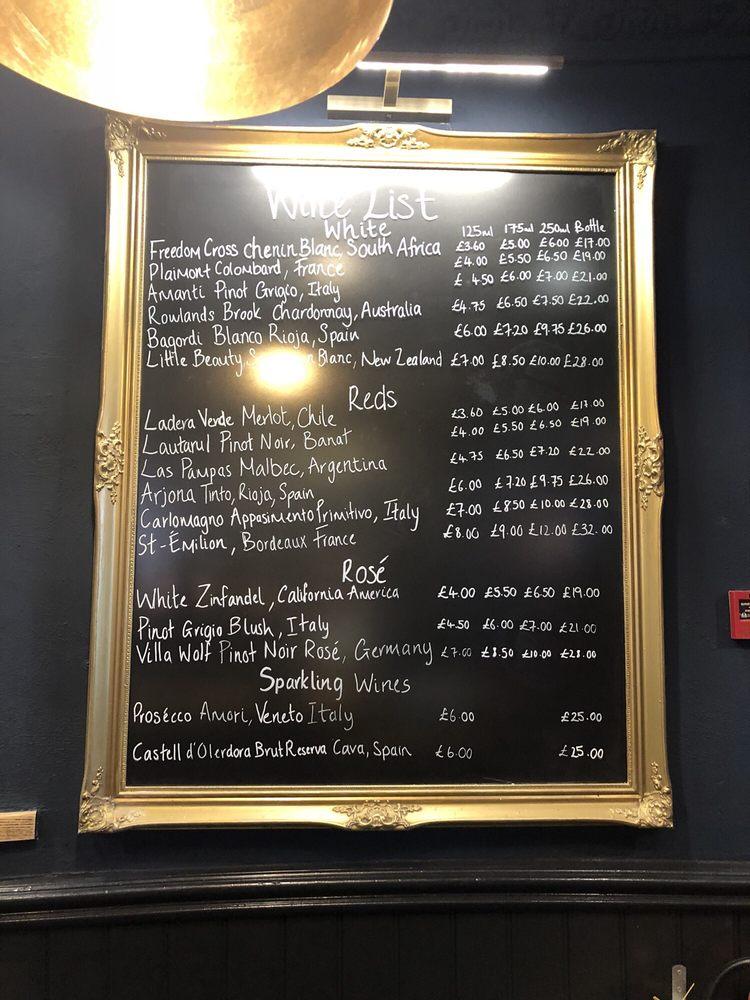 Wine List
White 125ml 175ml 250ml Bottle
Freedom Cross Chenin Blanc, South Africa £3.60 £5.00 £6.00 £17.00
Plaimont Colombard, France £4.00 £5.50 £6.50 £19.00
Amanti Pinot Grigio, Italy £4.50 £6.00 £7.00 £21.00
Rowlands Brook Chardonnay, Australia £4.75 £6.50 £7.50 £22.00
Bagordi Blanco Rioja, Spain £6.00 £7.20 £9.75 £26.00
Little Beauty, Blanc, New Zealand £7.00 £8.50 £10.00 £28.00
Reds
Ladera Verde Merlot, Chile £3.60 £5.00 £6.00 £17.00
Lautarul Pinot Noir, Banat £4.00 £5.50 £6.50 £19.00
Las Pampas Malbec, Argentina £4.75 £6.50 £7.20 £22.00
Arjona Tinto, Rioja, Spain £6.00 £7.20 £9.75 £26.00
Carlomagno Appasimento Primitivo, Italy £7.00 £8.50 £10.00 £28.00
St-Émilion, Bordeaux France £8.00 £9.00 £12.00 £32.00
Rosé
White Zinfandel, California America £4.00 £5.50 £6.50 £19.00
Pinot Grigio Blush, Italy £4.50 £6.00 £7.00 £21.00
Villa Wolf Pinot Noir Rosé, Germany £7.00 £8.50 £10.00 £28.00
Sparkling Wines
Prosecco Amori, Veneto Italy £6.00 £25.00
Castell d'Olerdora Brut Reserva Cava, Spain £6.00 £25.00